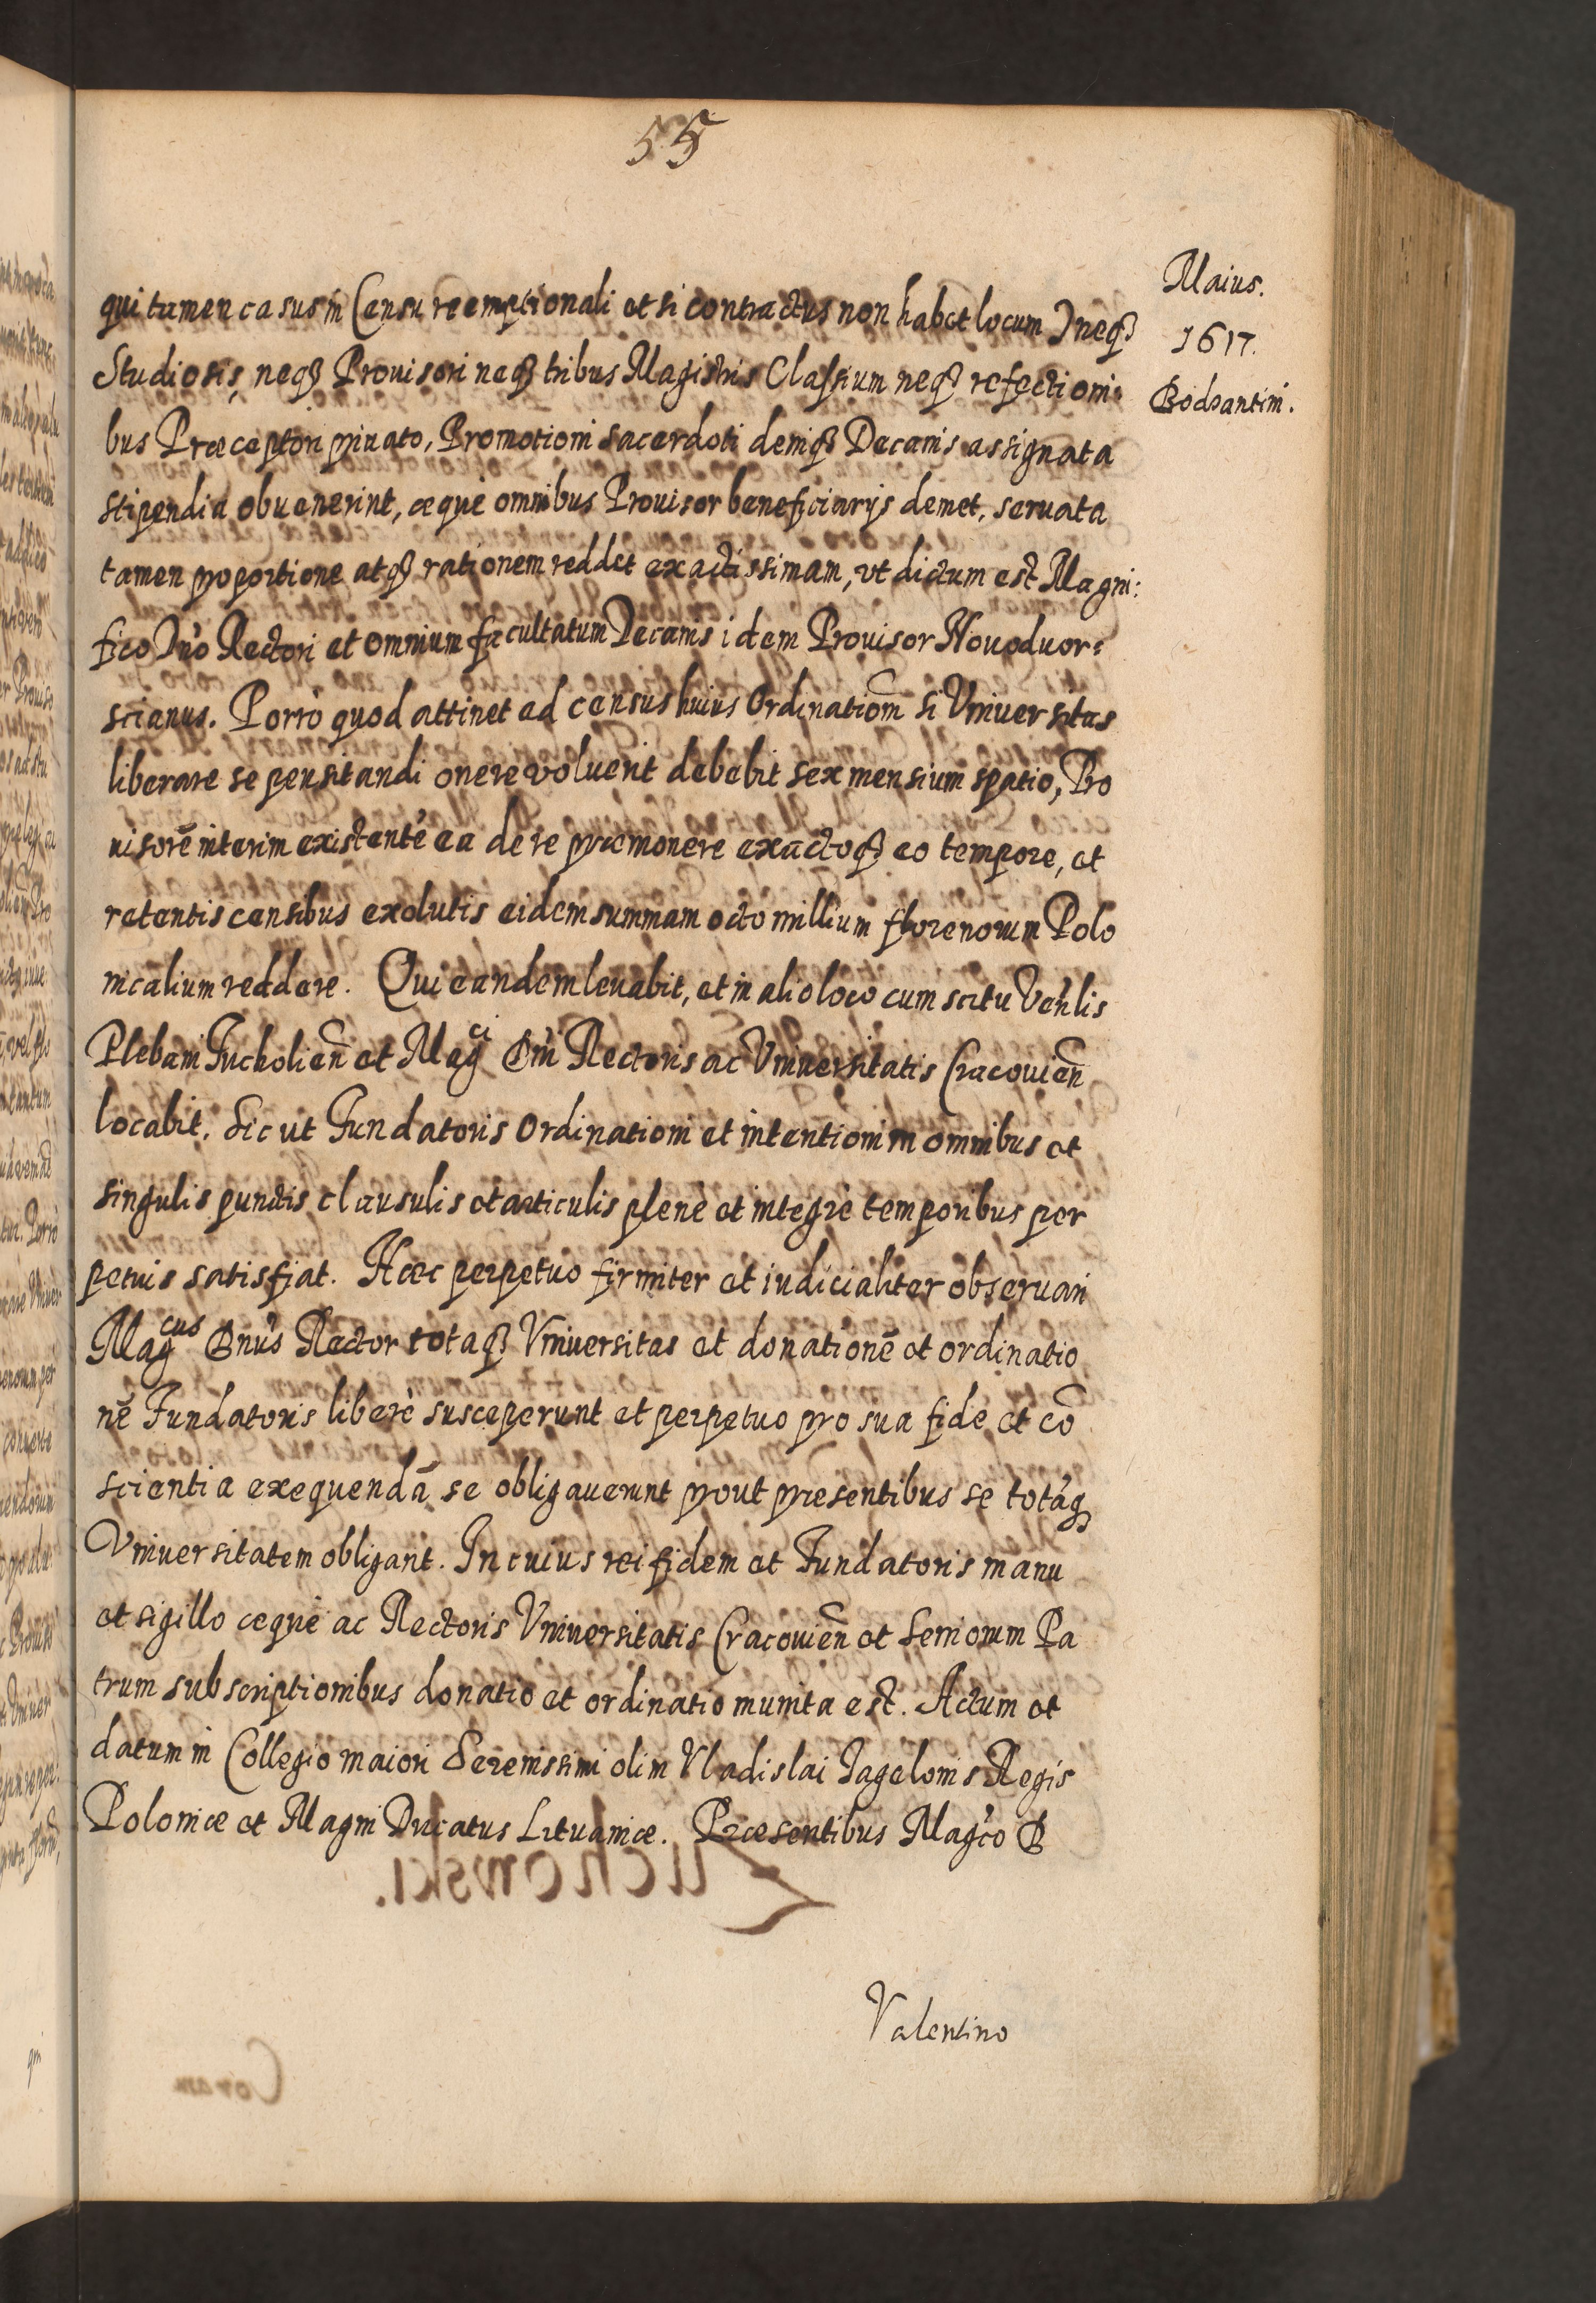 55
Maius.
1617.
Bodzantini.
qui tamen casus in Censu reemptionali et si contractus non habet locum) neq3
Studiosis, neq3 Prouisori neq3 tribus Magistris Classium neq3 refectioni:
bus Præceptori priuato, Promotioni sacerdoti deniq3 Decanis assignata
stipendia obuenerint, æquè omnibus Prouisor beneficiarijs demet, seruata
tamen proportione atq3 rationem reddet exactissimam, vt dictum est Magni:
fico Dn̄o Rectori et omnium facultatum Decanis idem Prouisor Nouoduor:
scianus. Porrò quod attinet ad census huius Ordinatiom̄ si Vniuersitas
liberare se pensitandi onere voluerit debebit sex mensium spatio, Pro
uisorē interim existentē ea de re præmonere exactoq3 eo tempore, et
retentis censibus exolutis eidem summam octo millium florenorum Polo
nicalium reddere. Qui eandem leuabit, et in alio loco cum scitu Veh̄lis
Plebani Tucholień et Magci Dn̄i Rectoris ac Vniuersitatis Cracouień
locabit. Sic ut Fundatoris Ordinationi et intentioni in omnibus et
singulis punctis clausulis et articulis plenè et integrè temporibus per
petuis satisfiat. Hæc perpetuo firmiter et iudicialiter obseruari
Magcus Dn̄us Rector totaq3 Vniuersitas et donationē et ordinatio
nē Fundatoris liberè susceperunt et perpetuo pro sua fide et cō
scientia exequendā se obligauerunt prout præsentibus se totáq3
Vniuersitatem obligant. In cuius rei fidem et Fundatoris manu
et sigillo æquè ac Rectoris Vniuersitatis Cracouień et Seniorum Pa
trum subscriptionibus donatio et ordinatio munita est. Actum et
datum in Collegio maiori Serenissimi olim Vladislai Jagelonis Regis
Poloniæ et Magni Ducatus Lituaniæ. Præsentibus Mag̃co D
Valentino